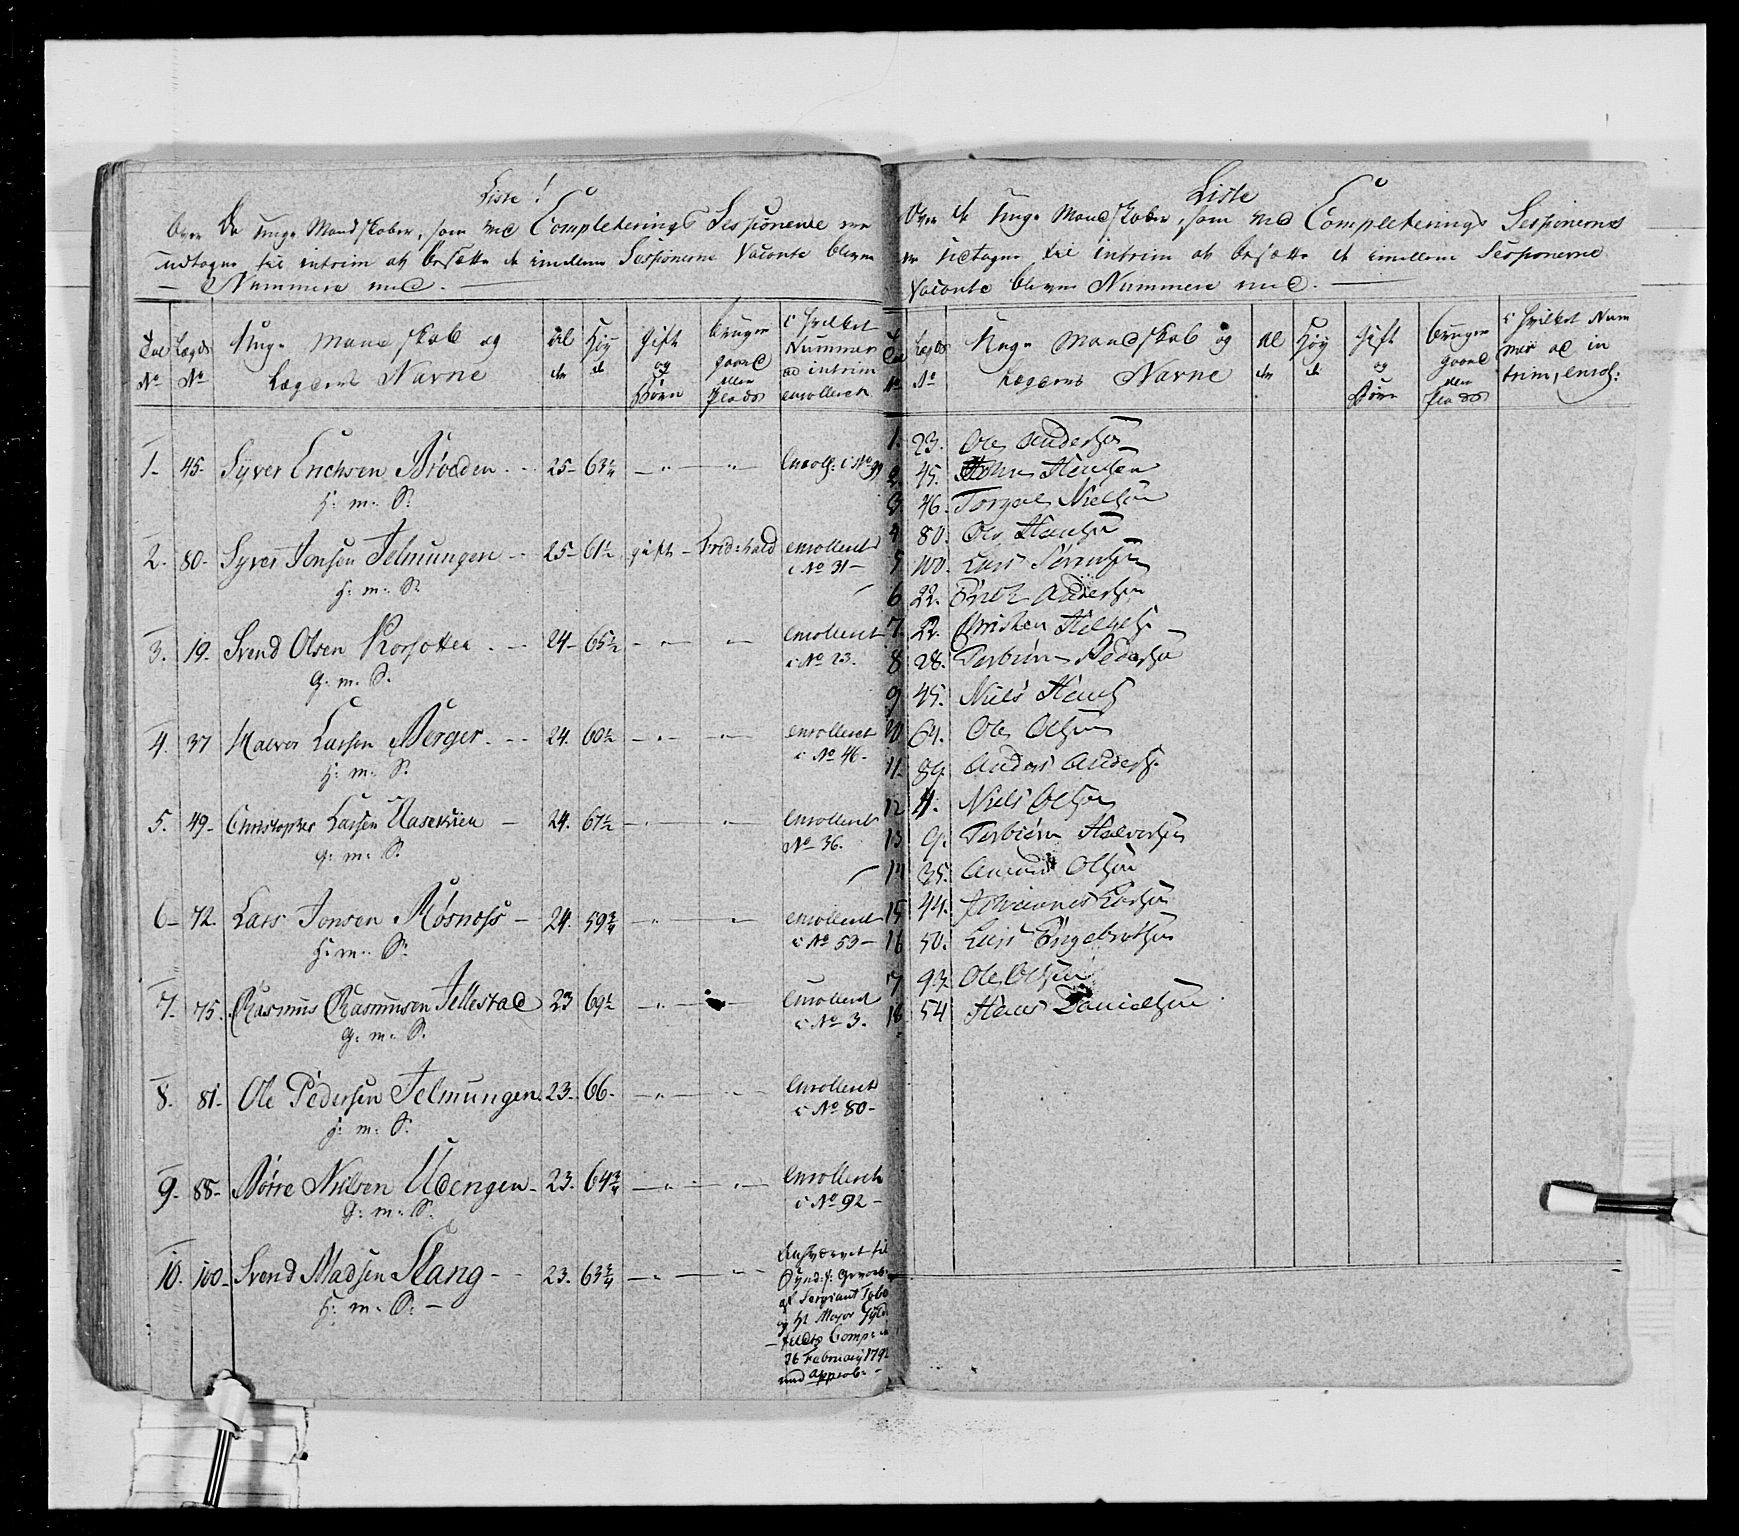 Liste!
Over De unge Mandskaber, som ved Completerings Sessionerne ere
udtagne til intrim at besætte de imellem Sessionerne Vacante blevne
Nummere med.
Tal No
Lægds No
Unge Mandskab og Lægdens Navne
Al de
Høy de
Gift og Børn
bruger gaard eller plads
i hvilket Nummer ad intrim enrolleret
1. 45. Syver Erichsen Brødden 25 63 1/4 Enroll: i No 99
H: m: S:
2. 80. Syver Jonsen Jelmungen 25 61 1/2 gift Fridr:hald enrolleret
H: m: S: i No 31
3. 19. Svend Olsen Korsotter 24 65 1/2 enrolleret
G: m: S: i No 23.
4. 37 Halvor Larsen Berger 24. 60 1/2 enrolleret
H: m: S: i No 46.
5. 49. Christopher Larsen Haserien 24. 67 1/2 enrolleret
G: m: S: No 36.
6 72. Lars Jonsen Røsnæss 24. 59 3/4 enrolleret
H: m: S: i No 53
7. 75. Rasmus Rasmusen Jellestad 23 69 1/2 Enrolleret
G: m: S: i No 3.
8. 81. Ole Pedersen Jelmungen 23. 66. Enrolleret
H: m: S: i No 80
9. 88. Børre Nielsen Udengen 23. 64 3/4 Enrolleret
G: m: S: i No 92
10. 100. Svend Madsen Slang 23. 63 3/4 hværvet til
H: m: S:
af Sergiant
og H Major
feldts Comp:
26 February 1792
med approb:
Liste
Over de Unge Mandskaber, som ved Completerings Sessionerne
er udtagne til intrim at besætte de imellem Sessionerne
Vacante blevne Nummere med.
Tal No
Lægds No
Unge Mandskab og Lægdens Navne
Al de
Høy de
Gift og Børn
bruger gaard eller plads
i hvilket Num mer ad in trim, enroll:
1. 23. Ole Andersen
2. 45. John Hansen
3 46. Torgal Nielsen
4 80. Ole Hansen
5 100. Lars Sørensen
6 22. Erich Andersen
7. 22. Christen
8 28. Torbiørn Pedersen
9 45. Niels Hans
10 64. Ole Olsen
11 89. Anders Anders
12 4. Niels Olsen
13 9. Torbiørn Halvorsen
14 35. Amund Olsen
15 44. Johannes Larsen
16 50. Lars Engebretsen
17 93. Ole Olsen
18 54 Hans Danielsen